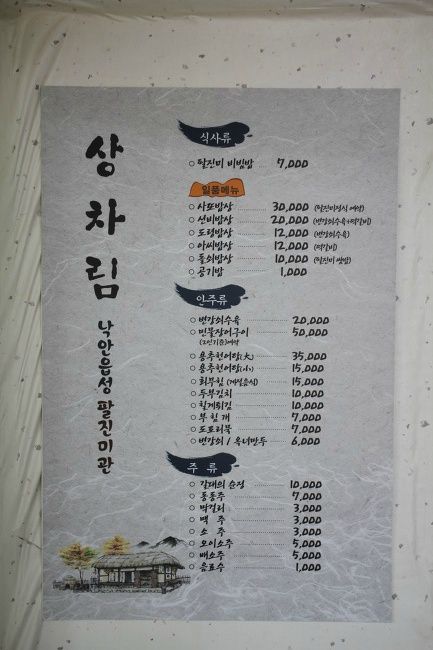 상차림
낙안읍성 팔진미관
식사류
○ 팔진미 비빔밥 7,000
일품메뉴
○ 사또밥상 30,000 (팔진미정식 예약)
○ 선비밥상 20,000 (변강쇠수육+떡갈비)
○ 도령밥상 12,000 (변강쇠수육)
○ 아씨밥상 12,000 (떡갈비)
○ 돌쇠밥상 10,000 (팔진미 쌈밥)
○ 공기밥 1,000
안주류
○ 변강쇠수육 20,000
○ 민물장어구이 50,000
(2인기준)예약
○ 용추현어탕(大) 35,000
○ 용추현어탕(小) 15,000
○ 회무침 (계절음식) 15,000
○ 두부김치 10,000
○ 칠게튀김 10,000
○ 부침개 7,000
○ 도토리묵 7,000
○ 변강쇠 / 옥녀만두 6,000
주류
○ 갈대의 순정 10,000
○ 동동주 7,000
○ 막걸리 3,000
○ 맥주 3,000
○ 소주 3,000
○ 오이소주 5,000
○ 배소주 5,000
○ 음료수 1,000